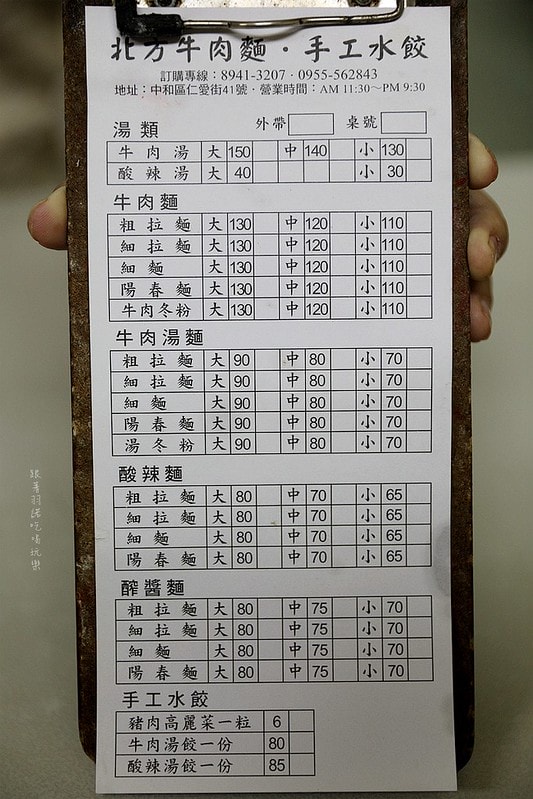 北方牛肉麵・手工水餃
訂購專線：8941-3207・0955-562843
地址：中和區仁愛街41號・營業時間：AM 11:30～PM 9:30
湯類 外帶 桌號
牛肉湯 大 150 中 140 小 130
酸辣湯 大 40 小 30
牛肉麵
粗拉麵 大 130 中 120 小 110
細拉麵 大 130 中 120 小 110
細麵 大 130 中 120 小 110
陽春麵 大 130 中 120 小 110
牛肉冬粉 大 130 中 120 小 110
牛肉湯麵
粗拉麵 大 90 中 80 小 70
細拉麵 大 90 中 80 小 70
細麵 大 90 中 80 小 70
陽春麵 大 90 中 80 小 70
湯冬粉 大 90 中 80 小 70
酸辣麵
粗拉麵 大 80 中 70 小 65
細拉麵 大 80 中 70 小 65
細麵 大 80 中 70 小 65
陽春麵 大 80 中 70 小 65
醡醬麵
粗拉麵 大 80 中 75 小 70
細拉麵 大 80 中 75 小 70
細麵 大 80 中 75 小 70
陽春麵 大 80 中 75 小 70
手工水餃
豬肉高麗菜一粒 6
牛肉湯餃一份 80
酸辣湯餃一份 85
跟著羽諾吃喝玩樂